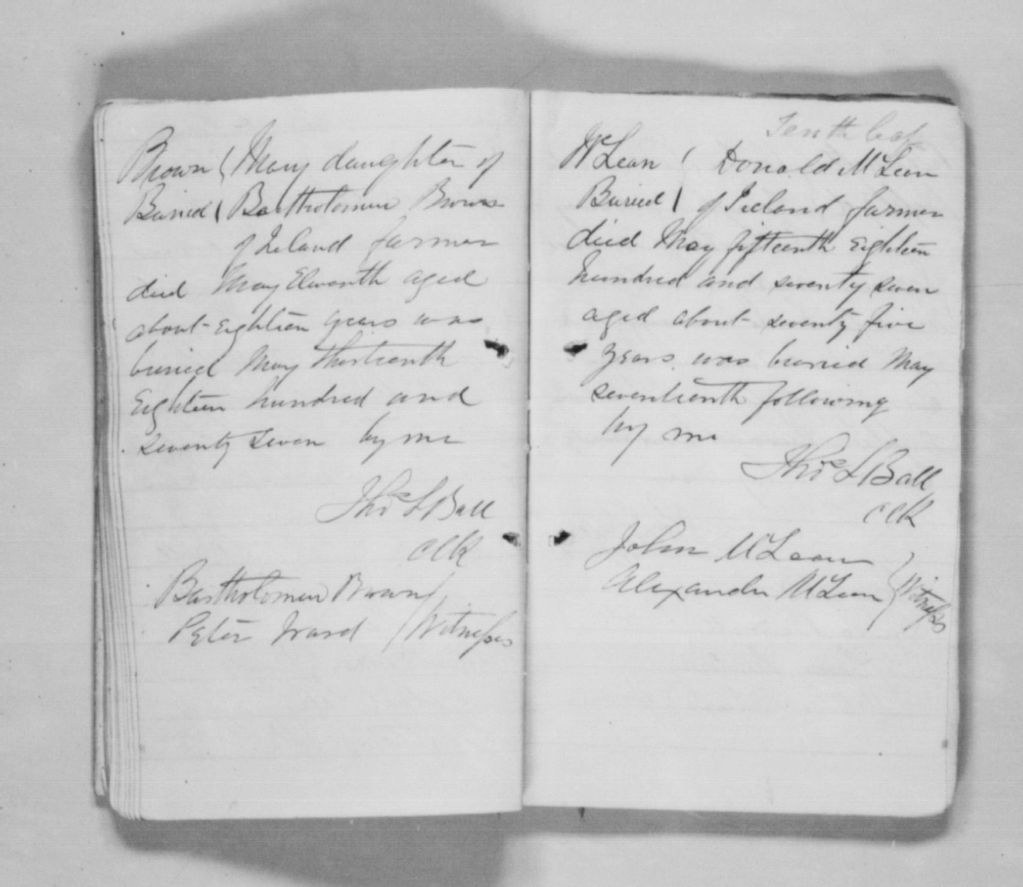 Brown ( Mary daughter of
Buried ( Bartholomew Brown
of Ireland farmer
died May Elventh aged
about eighteen years was
buried May thirteenth
Eighteen hundred and
seventy seven by me
Thos L Ball
clk
Bartholomew Brown )
Peter Ward ) Witnesses
Tenth leaf
McLean ( Donald McLean
Buried ) of Ireland farmer
died May fifteenth Eighteen
hundred and seventy seven
aged about seventy five
years was buried May
seventeenth following
by me
Thos L Ball
clk
John McLean )
Alexander McLean ) Witnesses